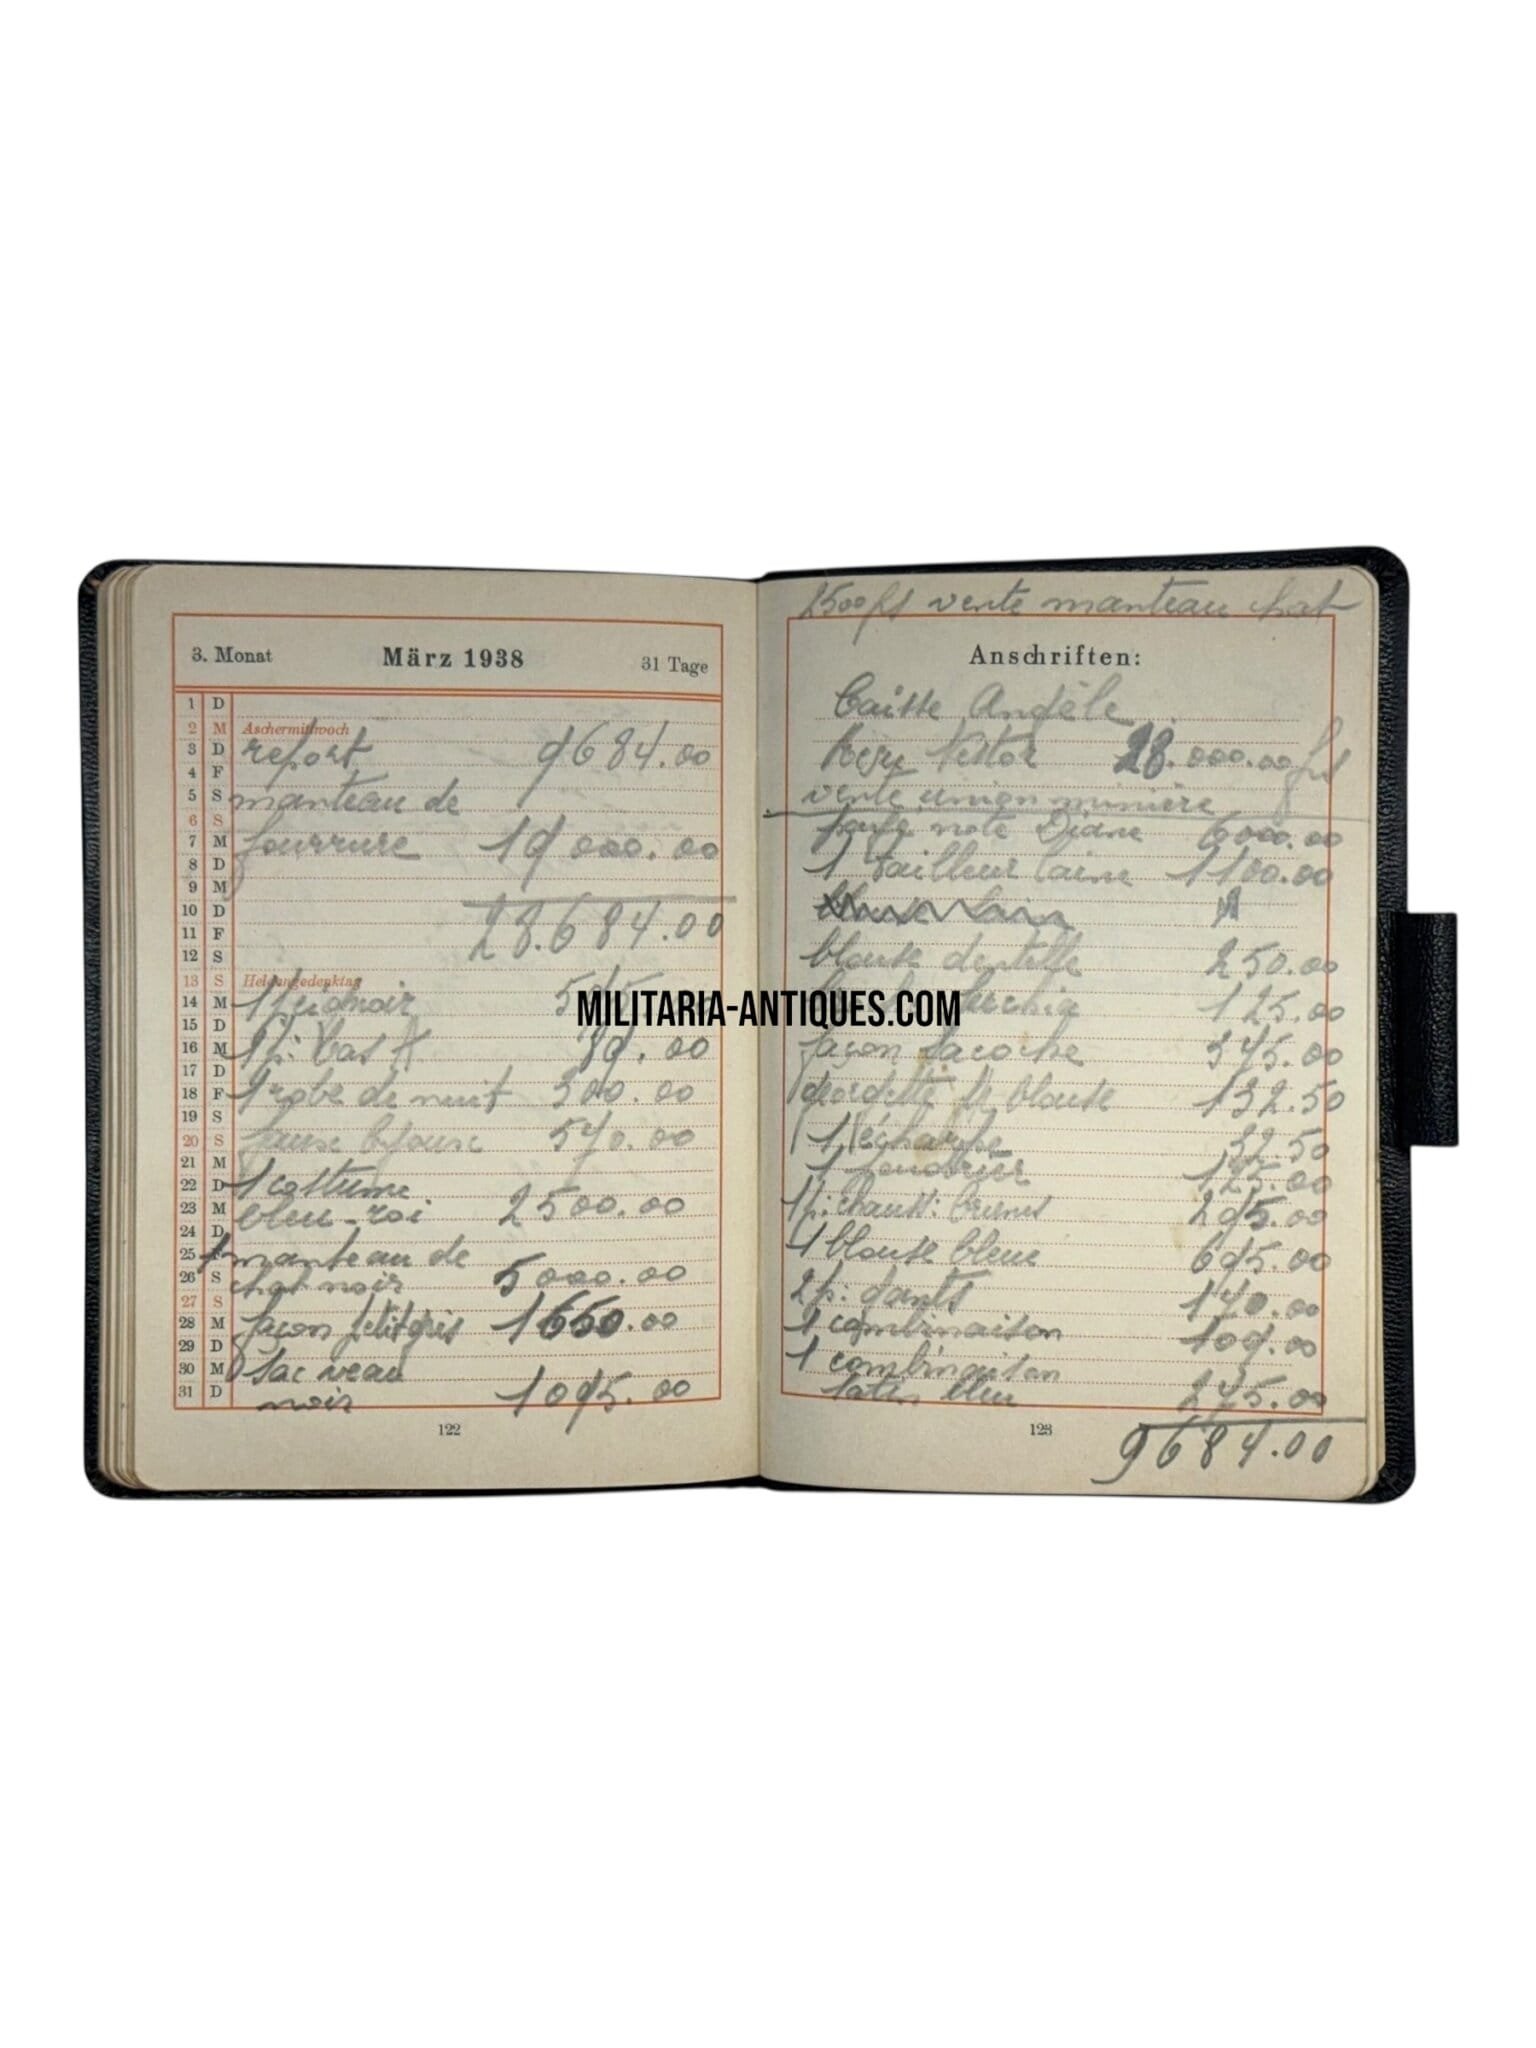 3. Monat März 1938 31 Tage
1 D
2 M Aschermittwoch
3 D report 9684.00
4 F
5 S manteau de
6 S
7 M fourrure 19000.00
8 D
9 M
10 D 28.684.00
11 F
12 S
13 S Heldengedenktag
14 M 1 peignoir 595.00
15 D
16 M 1 p: bas 39.00
17 D
18 F 1 robe de nuit 300.00
19 S
20 S fausse blouse 540.00
21 M
22 D 1 costume
23 M bleu-roi 2500.00
24 D
25 F 1 manteau de
26 S chat noir 5000.00
27 S
28 M façon petit gris 1660.00
29 D
30 M sac veau
31 D noir 1095.00
122
2500 frs vente manteau chat
Anschriften:
Caisse Angèle
Nestor 28.000.00 frs
vente union minière
note Diane 6000.00
1 tailleur laine 1100.00
blouse dentelle 250.00
125.00
façon sacoche 345.00
georgette pr blouse 132.50
1 écharpe 32.50
1 poudrier 125.00
1 p: chauss: brunes 295.00
1 blouse bleue 695.00
2 p: gants 140.00
1 combinaison 109.00
1 combinaison
satin bleu 245.00
123
9684.00
MILITARIA-ANTIQUES.COM